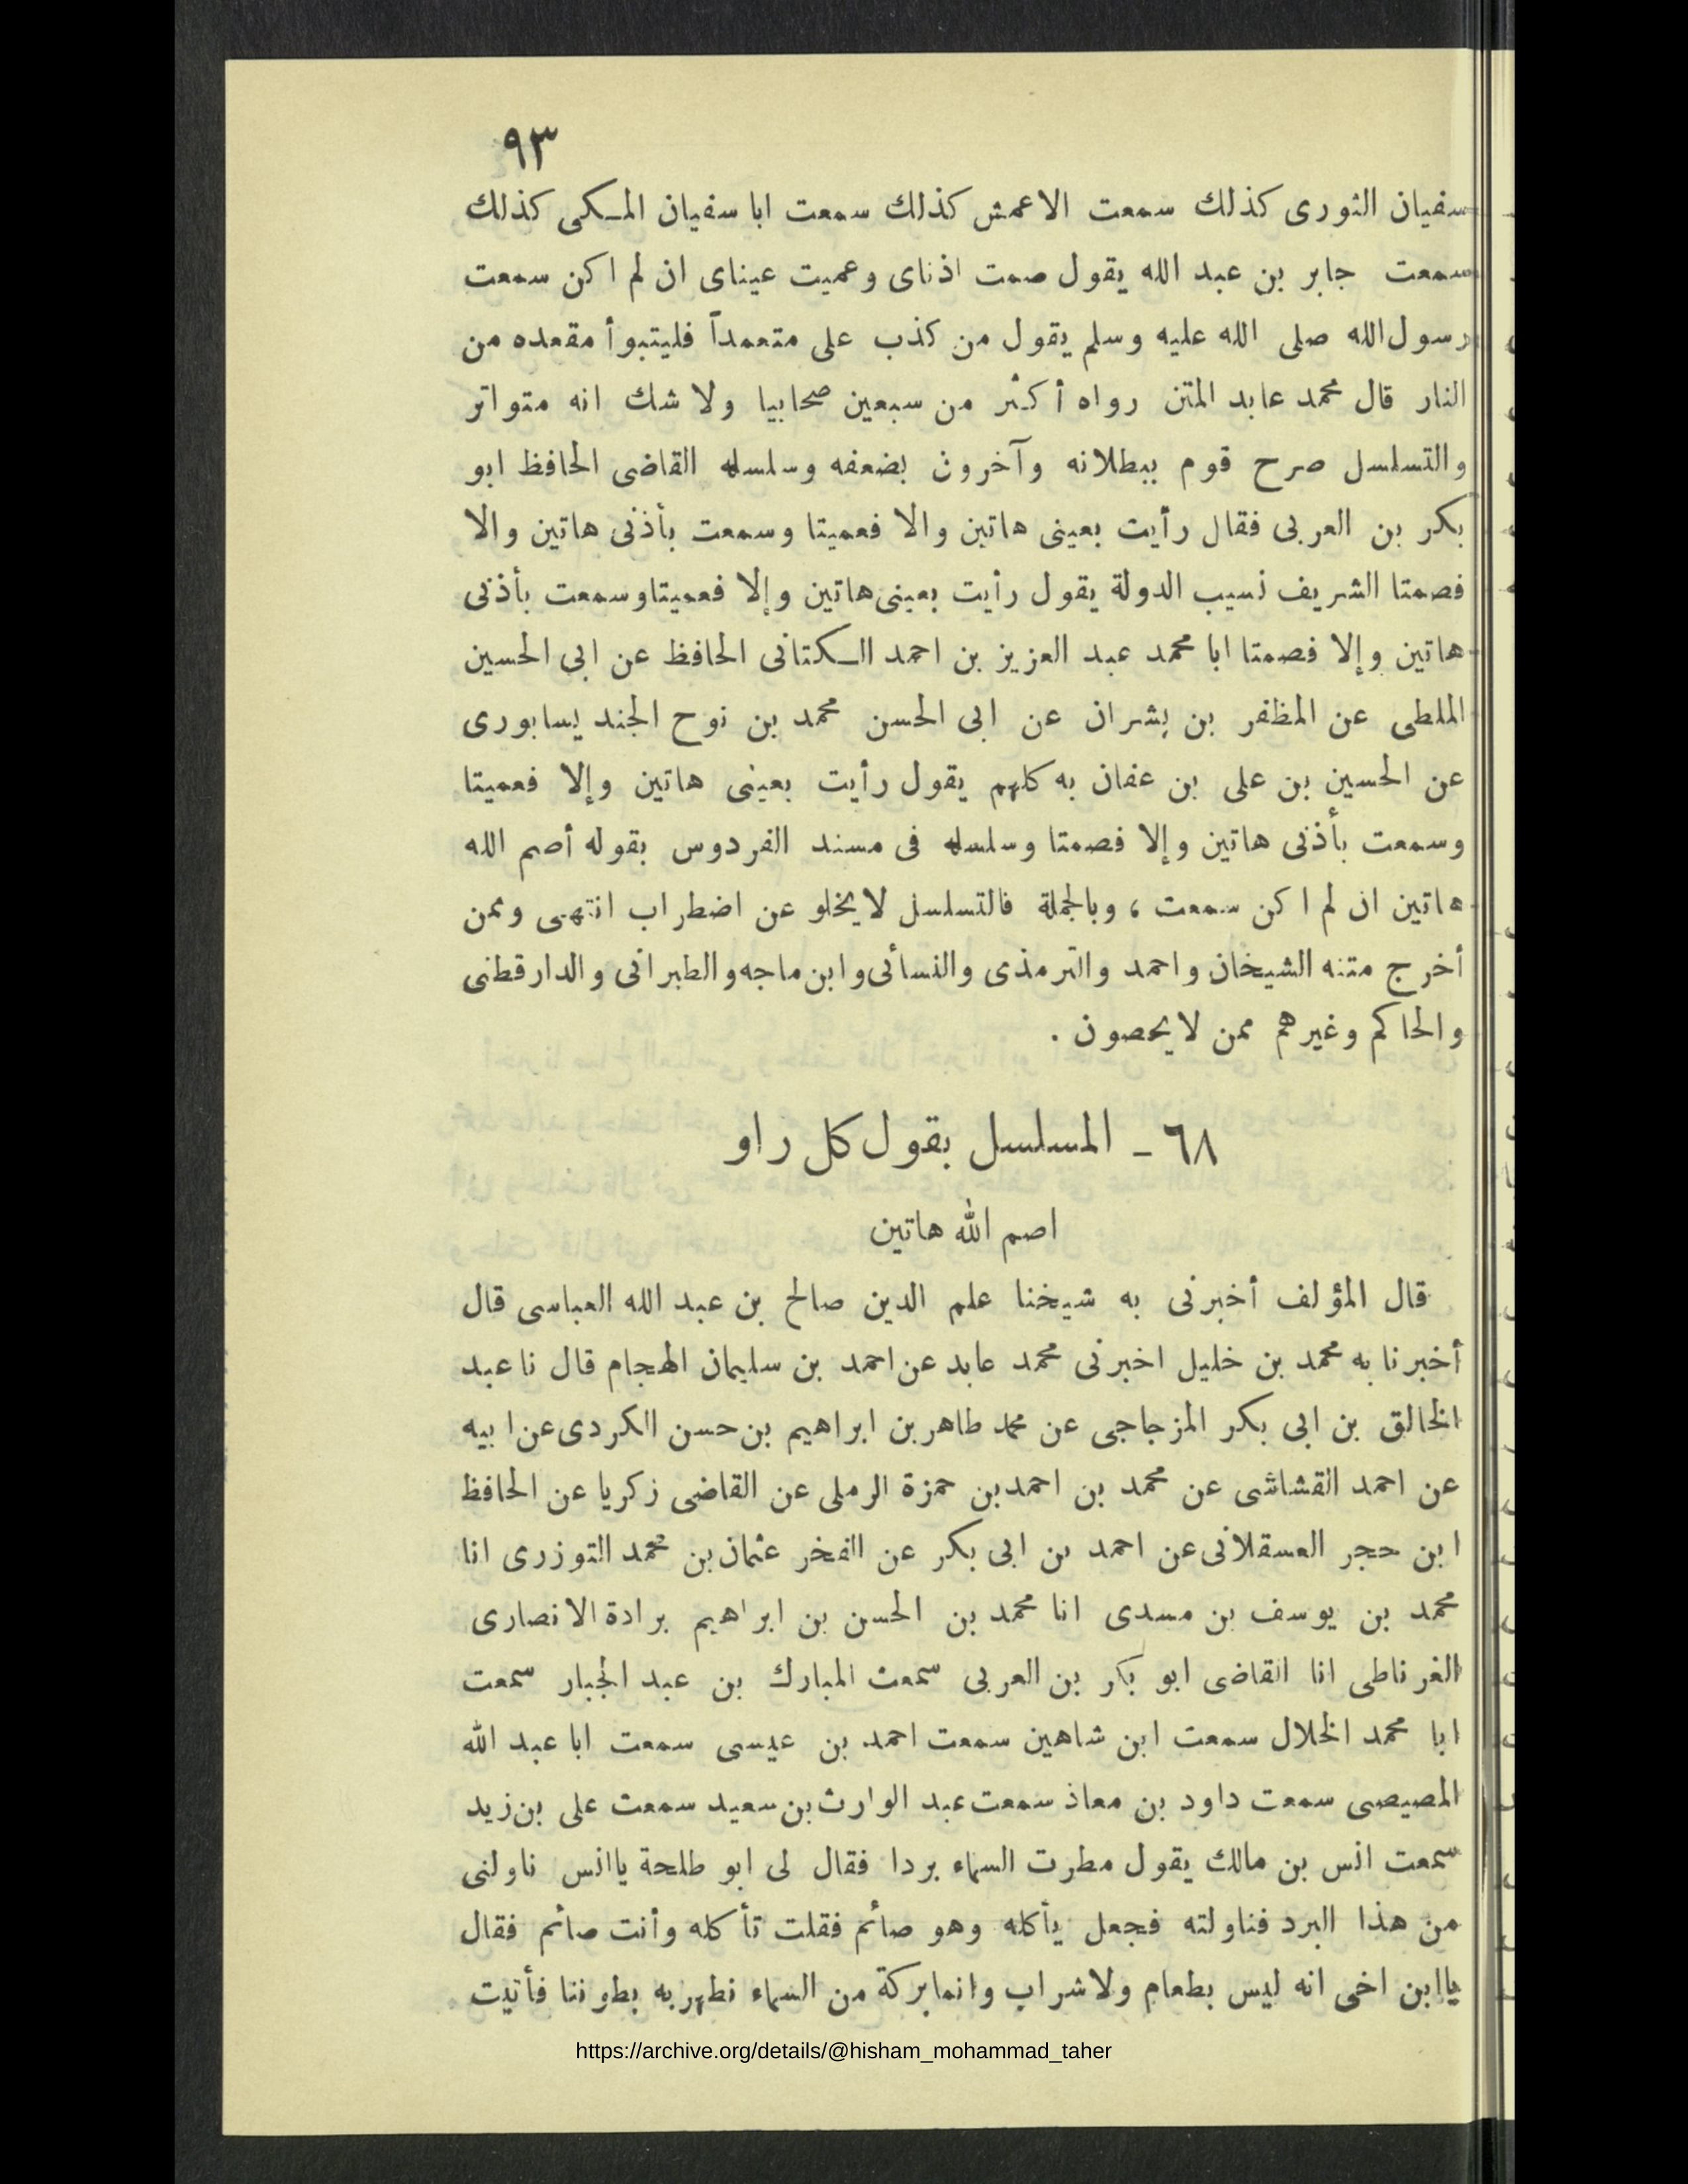 ٩٣
سفيان الثورى كذلك سمعت الاعمش كذلك سمعت ابا سفيان المكى كذلك
سمعت جابر بن عبد الله يقول صمت اذناى وعميت عيناى ان لم اكن سمعت
رسول الله صلى الله عليه وسلم يقول من كذب على متعمداً فليتبوأ مقعده من
النار قال محمد عابد المتن رواه أكثر من سبعين صحابيا ولا شك انه متواتر
والتسلسل صرح قوم ببطلانه وآخرون بضعفه وسلسله القاضى الحافظ ابو
بكر بن العربى فقال رأيت بعينى هاتين والا فعميتا وسمعت بأذنى هاتين والا
فصمتا الشريف نسيب الدولة يقول رأيت بعينى هاتين وإلا فعميتا وسمعت بأذنى
هاتين وإلا فصمتا ابا محمد عبد العزيز بن احمد الكتانى الحافظ عن ابى الحسين
الملطى عن المظفر بن بشران عن ابى الحسن محمد بن نوح الجند يسابورى
عن الحسين بن على بن عفان به كلهم يقول رأيت بعينى هاتين وإلا فعميتا
وسمعت بأذنى هاتين وإلا فصمتا وسلسله فى مسند الفردوس بقوله أصم الله
هاتين ان لم اكن سمعت ، وبالجملة فالتسلسل لا يخلو عن اضطراب انتهى وممن
أخرج متنه الشيخان واحمد والترمذى والنسائى وابن ماجه والطبرانى والدارقطنى
والحاكم وغيرهم ممن لا يحصون .
٦٨ - المسلسل بقول كل راو
اصم الله هاتين
قال المؤلف أخبرنى به شيخنا علم الدين صالح بن عبد الله العباسى قال
أخبرنا به محمد بن خليل اخبرنى محمد عابد عن احمد بن سليمان الهجام قال نا عبد
الخالق بن ابى بكر المزجاجى عن محمد طاهر بن ابراهيم بن حسن الكردى عن ابيه
عن احمد القشاشى عن محمد بن احمد بن حمزة الرملى عن القاضى زكريا عن الحافظ
ابن حجر العسقلانى عن احمد بن ابى بكر عن الفخر عثمان بن محمد التوزرى انا
محمد بن يوسف بن مسدى انا محمد بن الحسن بن ابراهيم برادة الانصارى
الغرناطى انا القاضى ابو بكر بن العربى سمعت المبارك بن عبد الجبار سمعت
ابا محمد الخلال سمعت ابن شاهين سمعت احمد بن عيسى سمعت ابا عبد الله
المصيصى سمعت داود بن معاذ سمعت عبد الوارث بن سعيد سمعت على بن زيد
سمعت انس بن مالك يقول مطرت السماء بردا فقال لى ابو طلحة ياانس ناولنى
من هذا البرد فناولته فجعل يأكله وهو صائم فقلت تأكله وأنت صائم فقال
ياابن اخى انه ليس بطعام ولا شراب وانما بركة من السماء نطهر به بطوننا فأتيت
https://archive.org/details/@hisham_mohammad_taher